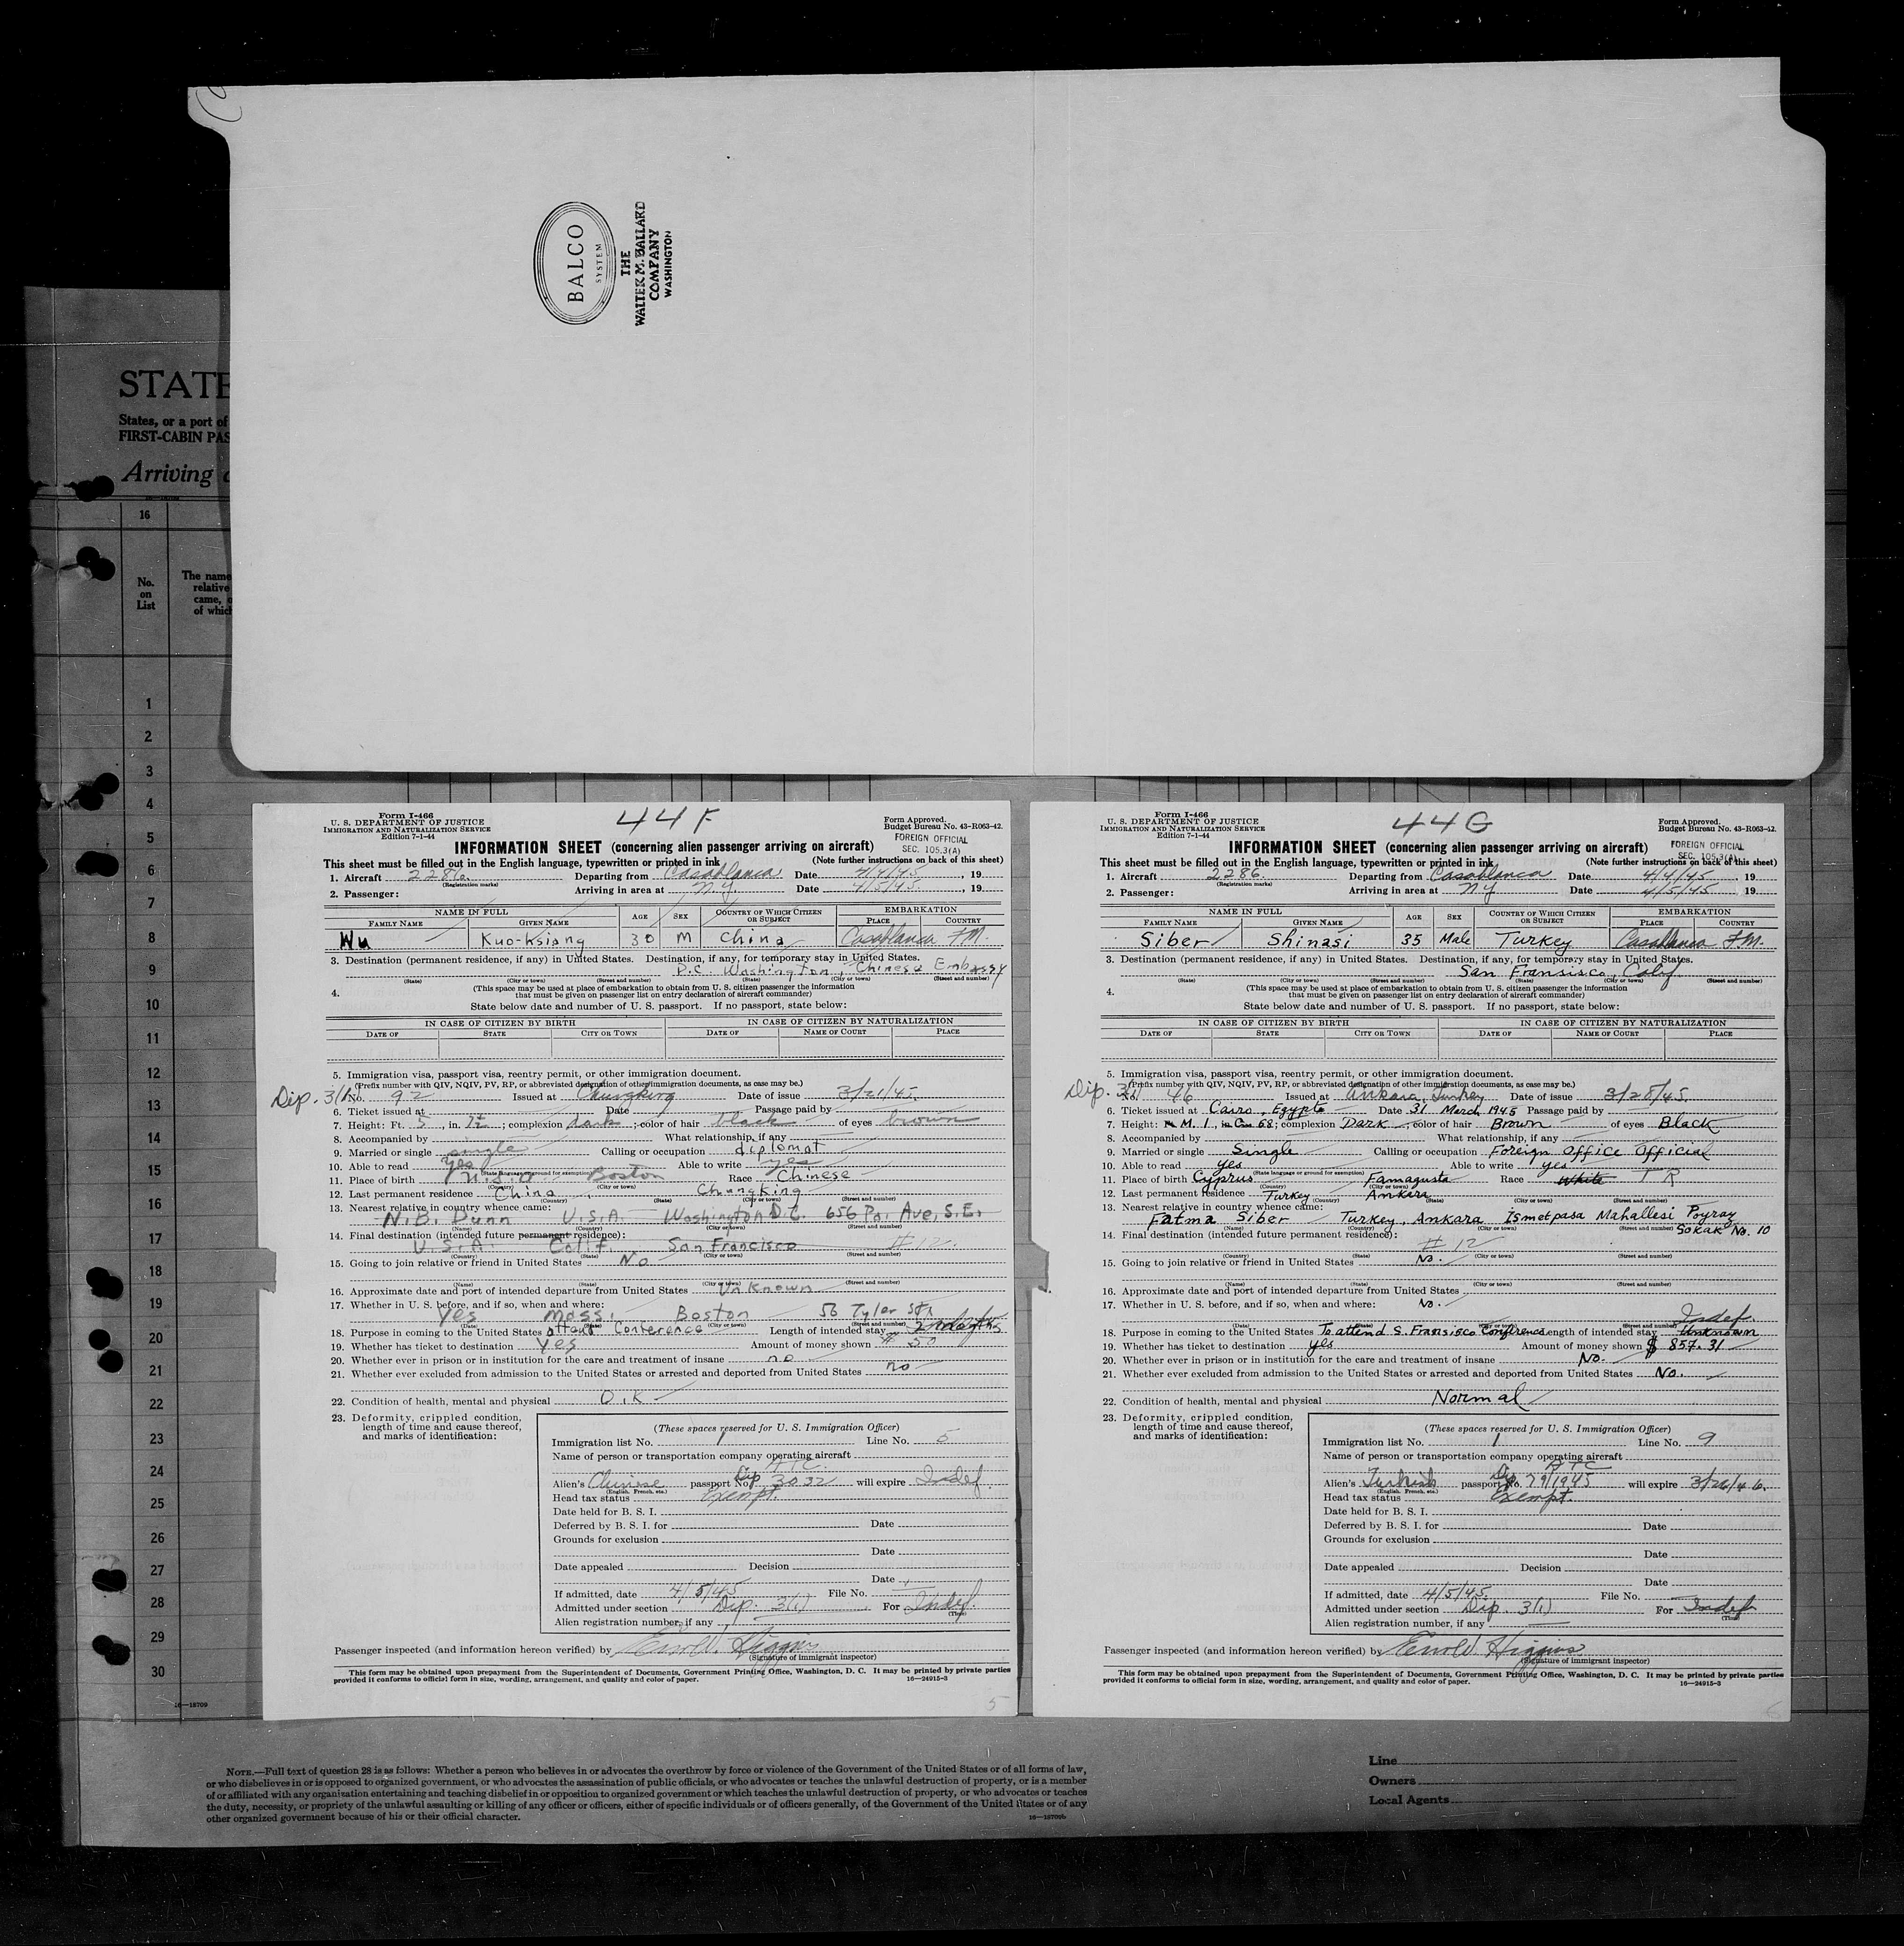 BALCO
SYSTEM
THE
WALTER M. BALLARD
COMPANY
WASHINGTON
STATE
States, or a port of
FIRST-CABIN PAS
Arriving
16
No.
on
List
The name
relative
came, o
of which
1
2
3
4
5
6
7
8
9
10
11
12
13
14
15
16
17
18
19
20
21
22
23
24
25
26
27
28
29
30
16—18709
44F
Form I-466
U. S. DEPARTMENT OF JUSTICE
IMMIGRATION AND NATURALIZATION SERVICE
Edition 7-1-44
Form Approved.
Budget Bureau No. 43-R063-42.
FOREIGN OFFICIAL
SEC. 105.3(A)
INFORMATION SHEET (concerning alien passenger arriving on aircraft)
This sheet must be filled out in the English language, typewritten or printed in ink (Note further instructions on back of this sheet)
1. Aircraft 2286 Departing from Casablanca Date 4/4/45, 19
(Registration marks)
2. Passenger: Arriving in area at NY Date 4/5/45, 19
NAME IN FULL AGE SEX COUNTRY OF WHICH CITIZEN OR SUBJECT EMBARKATION
FAMILY NAME GIVEN NAME PLACE COUNTRY
Wu Kuo-hsiang 30 M China Casablanca F.M.
3. Destination (permanent residence, if any) in United States. Destination, if any, for temporary stay in United States.
D.C. Washington, Chinese Embassy
(State) (City or town) (Street and number) (State) (City or town) (Street and number)
4. (This space may be used at place of embarkation to obtain from U. S. citizen passenger the information
that must be given on passenger list on entry declaration of aircraft commander)
State below date and number of U. S. passport. If no passport, state below:
IN CASE OF CITIZEN BY BIRTH IN CASE OF CITIZEN BY NATURALIZATION
DATE OF STATE CITY OR TOWN DATE OF NAME OF COURT PLACE
5. Immigration visa, passport visa, reentry permit, or other immigration document.
(Prefix number with QIV, NQIV, PV, RP, or abbreviated designation of other immigration documents, as case may be.)
Dip. 3/1 No. 92 Issued at Chungking Date of issue 3/21/45.
6. Ticket issued at Date Passage paid by
7. Height: Ft. 5, in. 7½; complexion dark; color of hair black of eyes brown
8. Accompanied by What relationship, if any
9. Married or single single Calling or occupation diplomat
10. Able to read yes Able to write yes
(State language or ground for exemption)
11. Place of birth U.S.A Boston Race Chinese
(Country) (City or town)
12. Last permanent residence China Chungking
(Country) (State) (City or town) (Street and number)
13. Nearest relative in country whence came:
N.B. Dunn U.S.A. Washington D.C. 656 Pa. Ave, S.E.
(Name) (Country) (City or town) (Street and number)
14. Final destination (intended future permanent residence):
U.S.A. Calif. San Francisco # 12.
(Country) (State) (City or town) (Street and number)
15. Going to join relative or friend in United States No
(Name) (State) (City or town) (Street and number)
16. Approximate date and port of intended departure from United States Unknown
17. Whether in U. S. before, and if so, when and where:
Yes Mass. Boston 56 Tyler St.
(Date) (State) (City or town) (Street and number)
18. Purpose in coming to the United States attend Conference Length of intended stay 2 months
19. Whether has ticket to destination Yes Amount of money shown # 50
20. Whether ever in prison or in institution for the care and treatment of insane no
21. Whether ever excluded from admission to the United States or arrested and deported from United States no
22. Condition of health, mental and physical O.K
23. Deformity, crippled condition,
length of time and cause thereof,
and marks of identification:
(These spaces reserved for U. S. Immigration Officer)
Immigration list No. 1 Line No. 5
Name of person or transportation company operating aircraft ATC.
Alien's Chinese passport No. Dip 3032 will expire Indef.
(English, French, etc.)
Head tax status exempt.
Date held for B. S. I.
Deferred by B. S. I. for Date
Grounds for exclusion
Date
Date appealed Decision
Date
If admitted, date 4/5/45 File No.
Admitted under section Dip. 3(1) For Indef
(Time)
Alien registration number, if any
Passenger inspected (and information hereon verified) by Errol W. Higgins
(Signature of immigrant inspector)
This form may be obtained upon prepayment from the Superintendent of Documents, Government Printing Office, Washington, D. C. It may be printed by private parties
provided it conforms to official form in size, wording, arrangement, and quality and color of paper. 16—24915-3
5
44G
Form I-466
U. S. DEPARTMENT OF JUSTICE
IMMIGRATION AND NATURALIZATION SERVICE
Edition 7-1-44
Form Approved.
Budget Bureau No. 43-R063-42.
FOREIGN OFFICIAL
SEC. 105.3(A)
INFORMATION SHEET (concerning alien passenger arriving on aircraft)
This sheet must be filled out in the English language, typewritten or printed in ink (Note further instructions on back of this sheet)
1. Aircraft 2286. Departing from Casablanca Date 4/4/45, 19
(Registration marks)
2. Passenger: Arriving in area at NY Date 4/5/45, 19
NAME IN FULL AGE SEX COUNTRY OF WHICH CITIZEN OR SUBJECT EMBARKATION
FAMILY NAME GIVEN NAME PLACE COUNTRY
Siber Shinasi 35 Male Turkey Casablanca F.M.
3. Destination (permanent residence, if any) in United States. Destination, if any, for temporary stay in United States.
San Fransisco, Calif
(State) (City or town) (Street and number) (State) (City or town) (Street and number)
4. (This space may be used at place of embarkation to obtain from U. S. citizen passenger the information
that must be given on passenger list on entry declaration of aircraft commander)
State below date and number of U. S. passport. If no passport, state below:
IN CASE OF CITIZEN BY BIRTH IN CASE OF CITIZEN BY NATURALIZATION
DATE OF STATE CITY OR TOWN DATE OF NAME OF COURT PLACE
5. Immigration visa, passport visa, reentry permit, or other immigration document.
(Prefix number with QIV, NQIV, PV, RP, or abbreviated designation of other immigration documents, as case may be.)
Dip. 3(1) No. 46 Issued at Ankara, Turkey Date of issue 3/28/45.
6. Ticket issued at Cairo, Egypte Date 31 March 1945 Passage paid by
7. Height: M. 1, 68; complexion Dark color of hair Brown of eyes Black
8. Accompanied by What relationship, if any
9. Married or single Single Calling or occupation Foreign Office Official
10. Able to read yes Able to write yes
(State language or ground for exemption)
11. Place of birth Cyprus Famagusta Race White T R
(Country) (City or town)
12. Last permanent residence Turkey Ankara
(Country) (State) (City or town) (Street and number)
13. Nearest relative in country whence came:
Fatma Siber Turkey, Ankara Ismetpasa Mahallesi Poyraz
Sokak No. 10
(Name) (Country) (City or town) (Street and number)
14. Final destination (intended future permanent residence):
# 12
(Country) (State) (City or town) (Street and number)
15. Going to join relative or friend in United States No.
(Name) (State) (City or town) (Street and number)
16. Approximate date and port of intended departure from United States
17. Whether in U. S. before, and if so, when and where: No.
Indef.
(Date) (State) (City or town) (Street and number)
18. Purpose in coming to the United States To attend S. Fransisco Conference Length of intended stay Unknown
19. Whether has ticket to destination yes Amount of money shown $ 857.31
20. Whether ever in prison or in institution for the care and treatment of insane No.
21. Whether ever excluded from admission to the United States or arrested and deported from United States No.
22. Condition of health, mental and physical Normal
23. Deformity, crippled condition,
length of time and cause thereof,
and marks of identification:
(These spaces reserved for U. S. Immigration Officer)
Immigration list No. 1 Line No. 9
Name of person or transportation company operating aircraft ATC
Alien's Turkish passport No. Dip. 79/1945 will expire 3/26/46.
(English, French, etc.)
Head tax status Exempt.
Date held for B. S. I.
Deferred by B. S. I. for Date
Grounds for exclusion
Date
Date appealed Decision
Date
If admitted, date 4/5/45 File No.
Admitted under section Dip. 3(1) For Indef
(Time)
Alien registration number, if any
Passenger inspected (and information hereon verified) by Errol W. Higgins
(Signature of immigrant inspector)
This form may be obtained upon prepayment from the Superintendent of Documents, Government Printing Office, Washington, D. C. It may be printed by private parties
provided it conforms to official form in size, wording, arrangement, and quality and color of paper. 16—24915-3
NOTE.—Full text of question 28 is as follows: Whether a person who believes in or advocates the overthrow by force or violence of the Government of the United States or of all forms of law,
or who disbelieves in or is opposed to organized government, or who advocates the assassination of public officials, or who advocates or teaches the unlawful destruction of property, or is a member
of or affiliated with any organization entertaining and teaching disbelief in or opposition to organized government or which teaches the unlawful destruction of property, or who advocates or teaches
the duty, necessity, or propriety of the unlawful assaulting or killing of any officer or officers, either of specific individuals or of officers generally, of the Government of the United States or of any
other organized government because of his or their official character. 16—18709b
Line
Owners
Local Agents